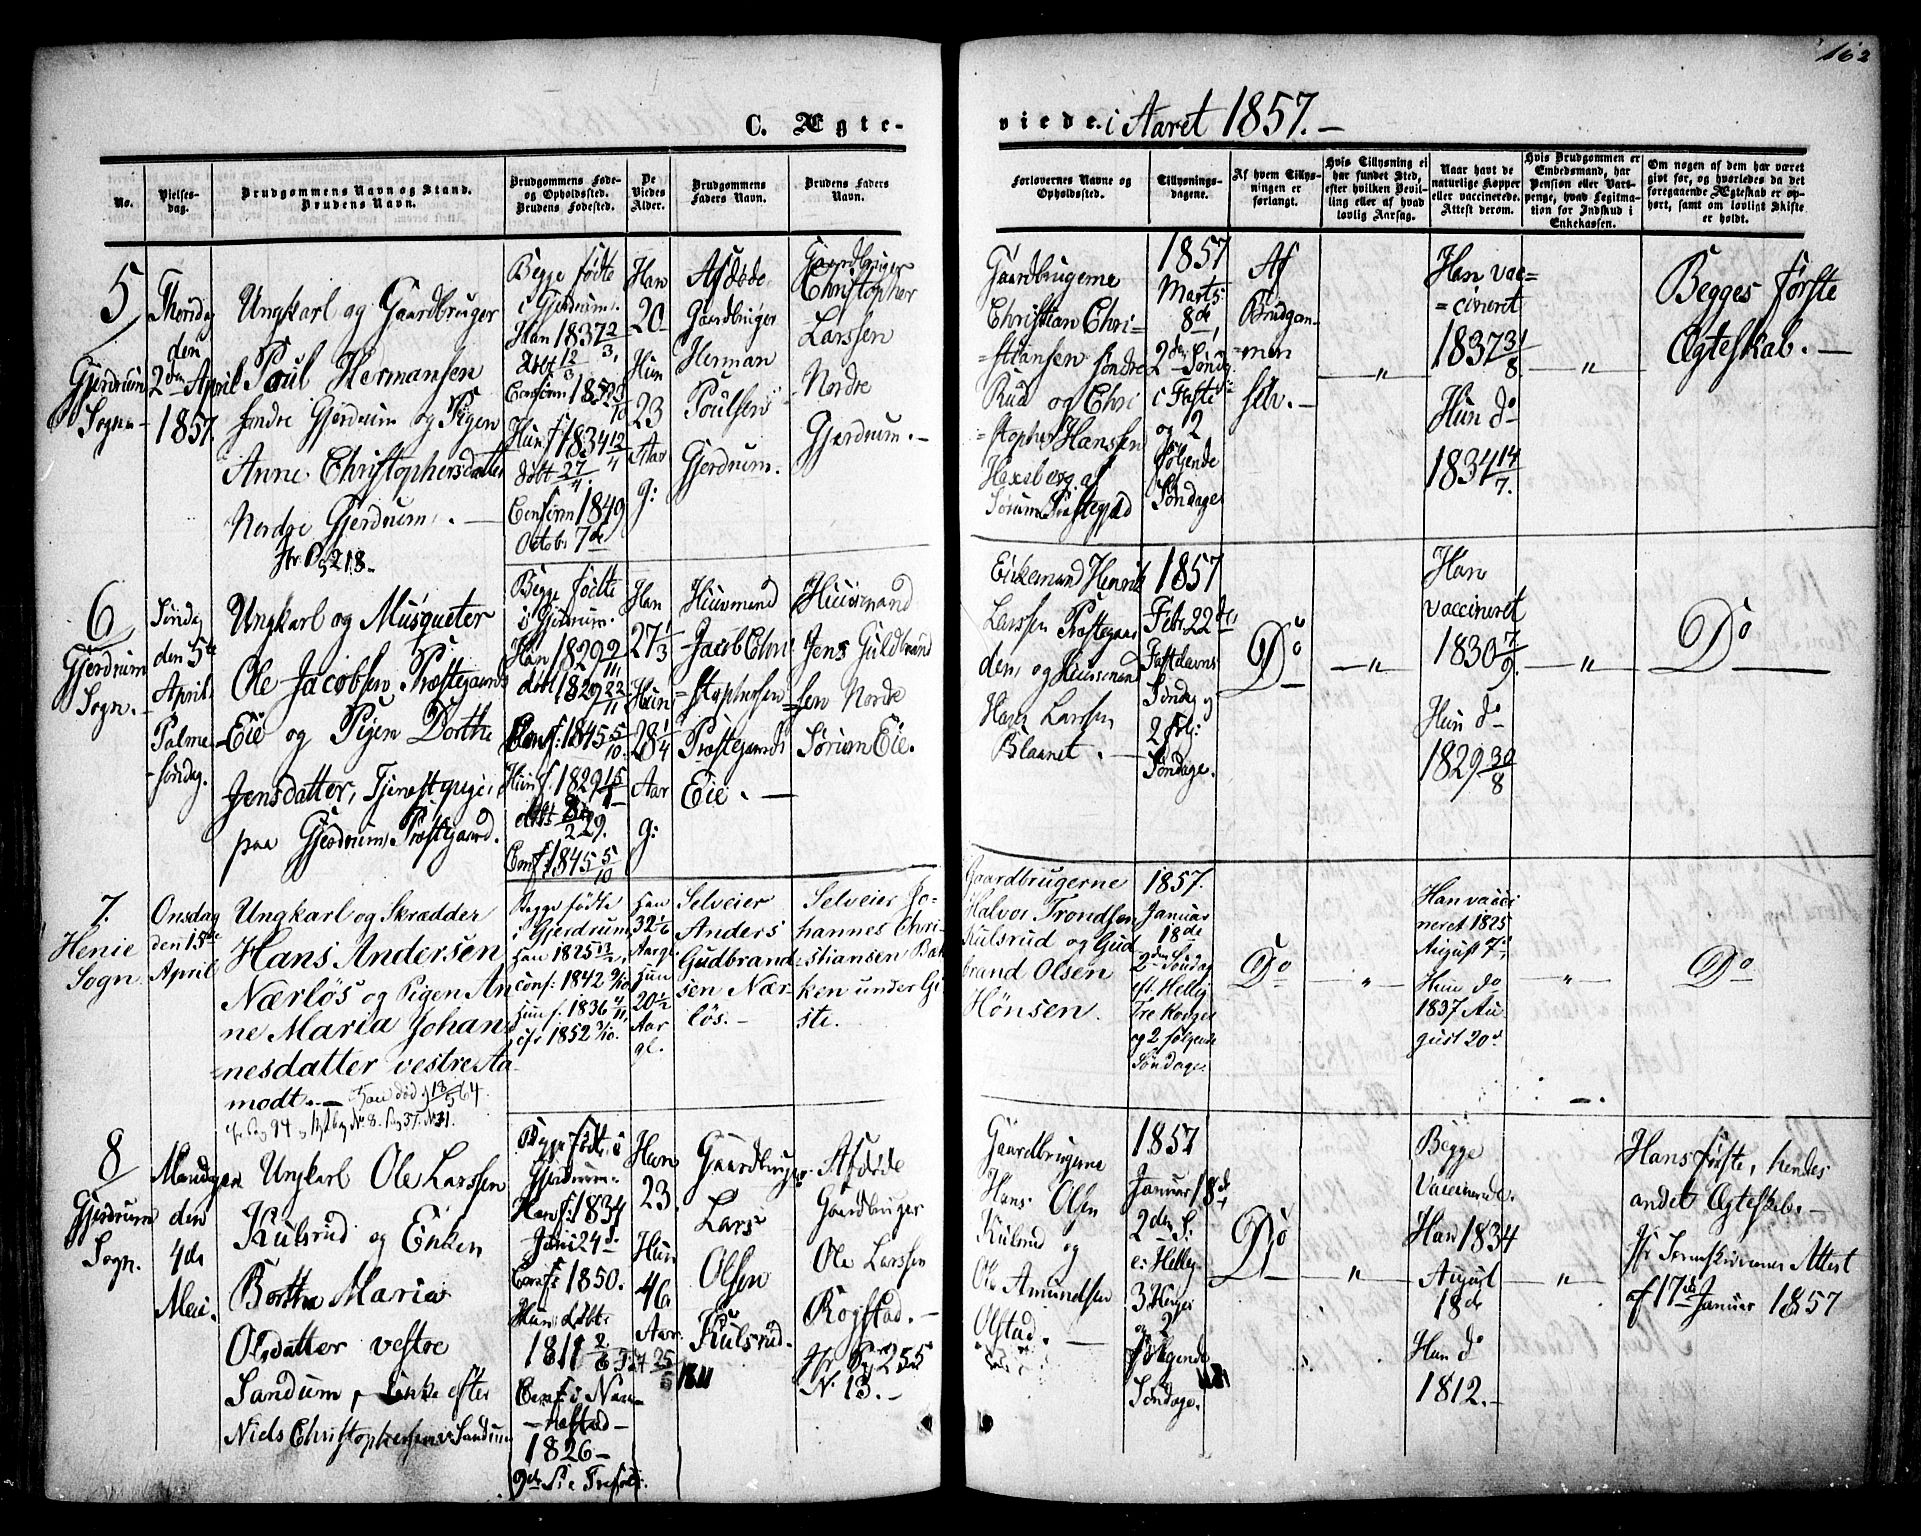 162
C. Ægte-
viede. i Aaret 1857.-
No.
Vielses-
dag.
Brudgommens Navn og Stand.
Brudens Navn.
Brudgommens Føde-
og Opholdssted.
Brudens Fødested.
De
Viedes
Alder.
Brudgommens
Faders Navn.
Brudens Faders
Navn.
Forlovernes Navne og
Opholdssted.
Tillysnings-
dagene.
Af hvem Tillys-
ningen er
forlangt.
Hvis Tillysning ei
har fundet Sted,
efter hvilken Bevil-
ling eller af hvad
lovlig Aarsag.
Naar havt de
naturlige Kopper
eller vaccinerede.
Attest derom.
Hvis Brudgommen er
Embedsmand, har
Pension eller Vart-
penge, hvad Legitima-
tion for Indskud i
Enkekassen.
Om nogen af dem har været
gift før, og hvorledes da det
foregaaende Ægteskab er op-
hørt, samt om lovligt Skifte
er holdt.
5
Gjerdrum
Sogn-
Thorsdag
den
2den April
1857.
Ungkarl og Gaardbruger
Poul Hermansen
søndre Gjerdrum og Pigen
Anne Christophersdatter
Nordre Gjerdrum. -
Jfr. Pag 218.
Begge fødte
i Gjerdrum.
Han 1837 2/3,
døbt 12/3
Confirm 185
Hun f. 1834 12/4
døbt 27/4.
Confirm 1849
Octobr 7de
Han
20
Hun
23
Aar
g:
Afdøde
Gaardbruger
Herman
Poulsen
Gjerdrum.
Gaardbruger
Christopher
Larssen
Nordre
Gjerdrum. -
Gaardbrugerne
Christian Chri-
=stiansen søndre
Ruud og Chri
=stopher Hanssen
Hexeberg af
Sørum Præstegjeld
1857
Marts
8de,
2den Sønd.
i Faste
og 2
følgende
Søndage
Af
Brudgom-
=men
selv. -
- " -
Han vac=
=cineret
1837 31/8.
Hun do
1834 14/7.
- " -
Begges første
Ægteskab. -
6
Gjerdrum
Sogn. -
Søndag
den 5te
April
Palme-
-søndag.
Ungkarl og Musqueter
Ole Jacobsen Præstegaards
Eie og Pigen Dorthe
Jensdatter, Tjenestepige
paa Gjerdrum Præstegaard.
Begge fødte
i Gjerdrum.
Han 1829 2/11
døbt 1829 22/11
Conf: 1845 5/10.
Hun f. 1829 15/1
døbt 8/2 29.
Conf 1845 5/10
Han
27 1/3
Hun
28 1/4
Aar
g:
Huusmand
Jacob Chri
=stophersen
Præstegaards
Eie. -
Huusmand
Jens Guldbrand
sen Nordre
Sørum Eie.
Enkemand Henrik
Larssen Præstegaar
den, og Huusmand
Hans Larssen
Blaanet. -
1857
Febr 22de,
Fastelavns
Søndag og
2 følg:
Søndage.
Do
- " -
Han
vaccineret
1830 7/9.
Hun do
1829 30/8
- " -
Do
7.
Henie
Sogn.
Onsdag
den 15de
April
Ungkarl og Skrædder
Hans Andersen
Nærløs og Pigen An
ne Maria Johan
=nesdatter vestre Aa
modt. - Han død 18/5 64.
Begge fødte
i Gjerdrum.
Han 1825
conf: 1842 9/10
Hun f. 1836 4/11,
cfr 1852 3/10.
Han
32 1/6
Aargl.
Hun
20 1/2
Aar
gl.
Selveier
Anders
Gudbrand
sen Nær-
løs. -
Selveier Jo-
hannes Chri-
stiansen Bak
ken under Gi
ste.
Gaardbrugerne
Halvor Trondsen
Kulsrud og Gud
brand Olsen
Hönsen.
1857.
Januar
18de
2den Søndag
eft. Hellig
Tre Konger
og 2 følgende
Søndage
Do
- " -
Han vacci
neret 1825
August 7de
Hun do
1837 Au
gust 20de
- " -
Do
8
Gjerdrum
Sogn.
Mandagen
den
4de
Mai.
Ungkarl Ole Larssen
Kulsrud og Enken
Berthe Maria
Olsdatter vestre
Sandum, Enke efter
Niels Christophersen Sandum
Begge født i
Gjerdrum
Han f: 1834
Juni 24de
Conf: 1850.
Hun døbt
1811 2/6
Conf. i Nan-
-nestad-
1826-
Han
23.
Hun
46
Aar.
Gaardbruger
Lars
Olsen
Kulsrud.
Afdøde
Gaardbruger
Ole Larssen
Rogstad. -
Jfr. Pag 255
N. 13. -
Gaardbrugerne
Hans Olsen
Kulsrud og
Ole Amundsen
Olstad. -
1857
Januar 18de,
2den S.
e: Hellig
3 Konger
og 2
følgende
Søndage.
Do
- " -
Begge
Vaccinerede.
Han 1834
August
18de
Hun do
1812. -
- " -
Hans første, hendes
andet Ægteskab. -
Jfr Sorenskriverens Attest
af 17de Januar 1857